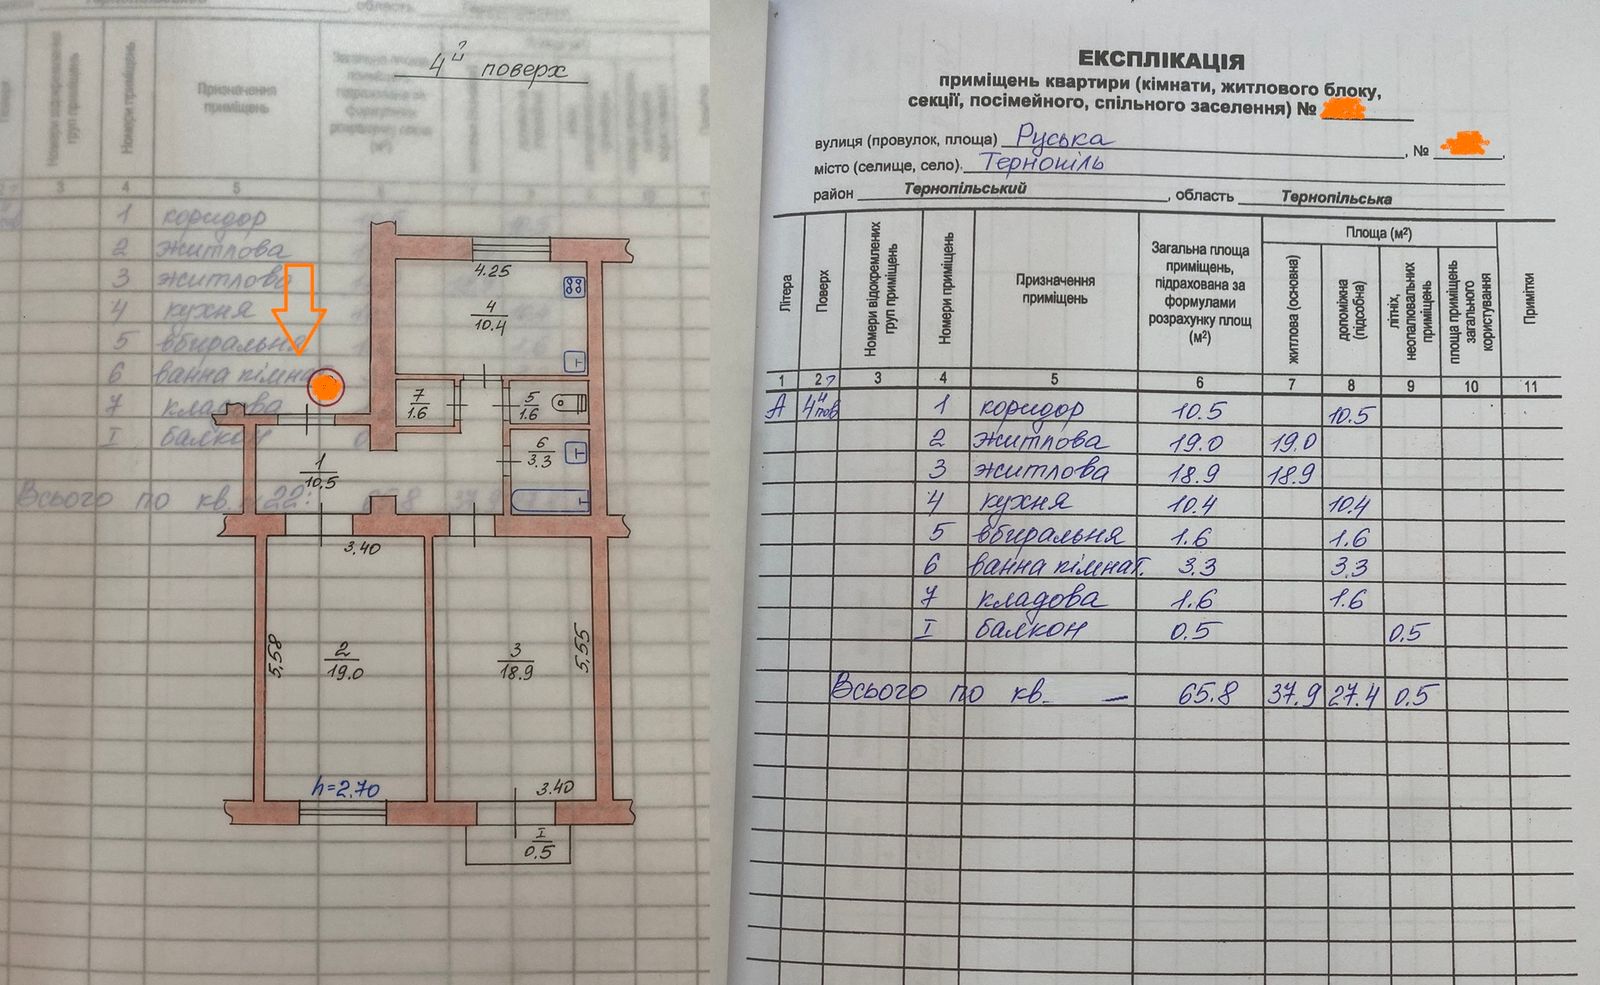 4й поверх
Призначення приміщень
Номери приміщень
3 4 5
1 коридор
2 житлова
3 житлова
4 кухня
5 вбиральня
6 ванна кімнат
7 кладова
I балкон
Всього по кв. 22: 65.8 37.9
4.25
4
10.4
7
1.6
5
1.6
6
3.3
1
10.5
3.40
5.58
2
19.0
3
18.9
5.55
h=2.70
3.40
I
0.5
ЕКСПЛІКАЦІЯ
приміщень квартири (кімнати, житлового блоку,
секції, посімейного, спільного заселення) №
вулиця (провулок, площа) Руська, №
місто (селище, село). Тернопіль
район Тернопільський, область Тернопільська
Літера
Поверх
Номери відокремлених груп приміщень
Номери приміщень
Призначення приміщень
Загальна площа приміщень, підрахована за формулами розрахунку площ (м²)
Площа (м²)
житлова (основна)
допоміжна (підсобна)
літніх, неопалювальних приміщень
площа приміщень загального користування
Примітки
1 2 3 4 5 6 7 8 9 10 11
А 4й пов 1 коридор 10.5 10.5
2 житлова 19.0 19.0
3 житлова 18.9 18.9
4 кухня 10.4 10.4
5 вбиральня 1.6 1.6
6 ванна кімнат. 3.3 3.3
7 кладова 1.6 1.6
I балкон 0.5 0.5
Всього по кв. — 65.8 37.9 27.4 0.5